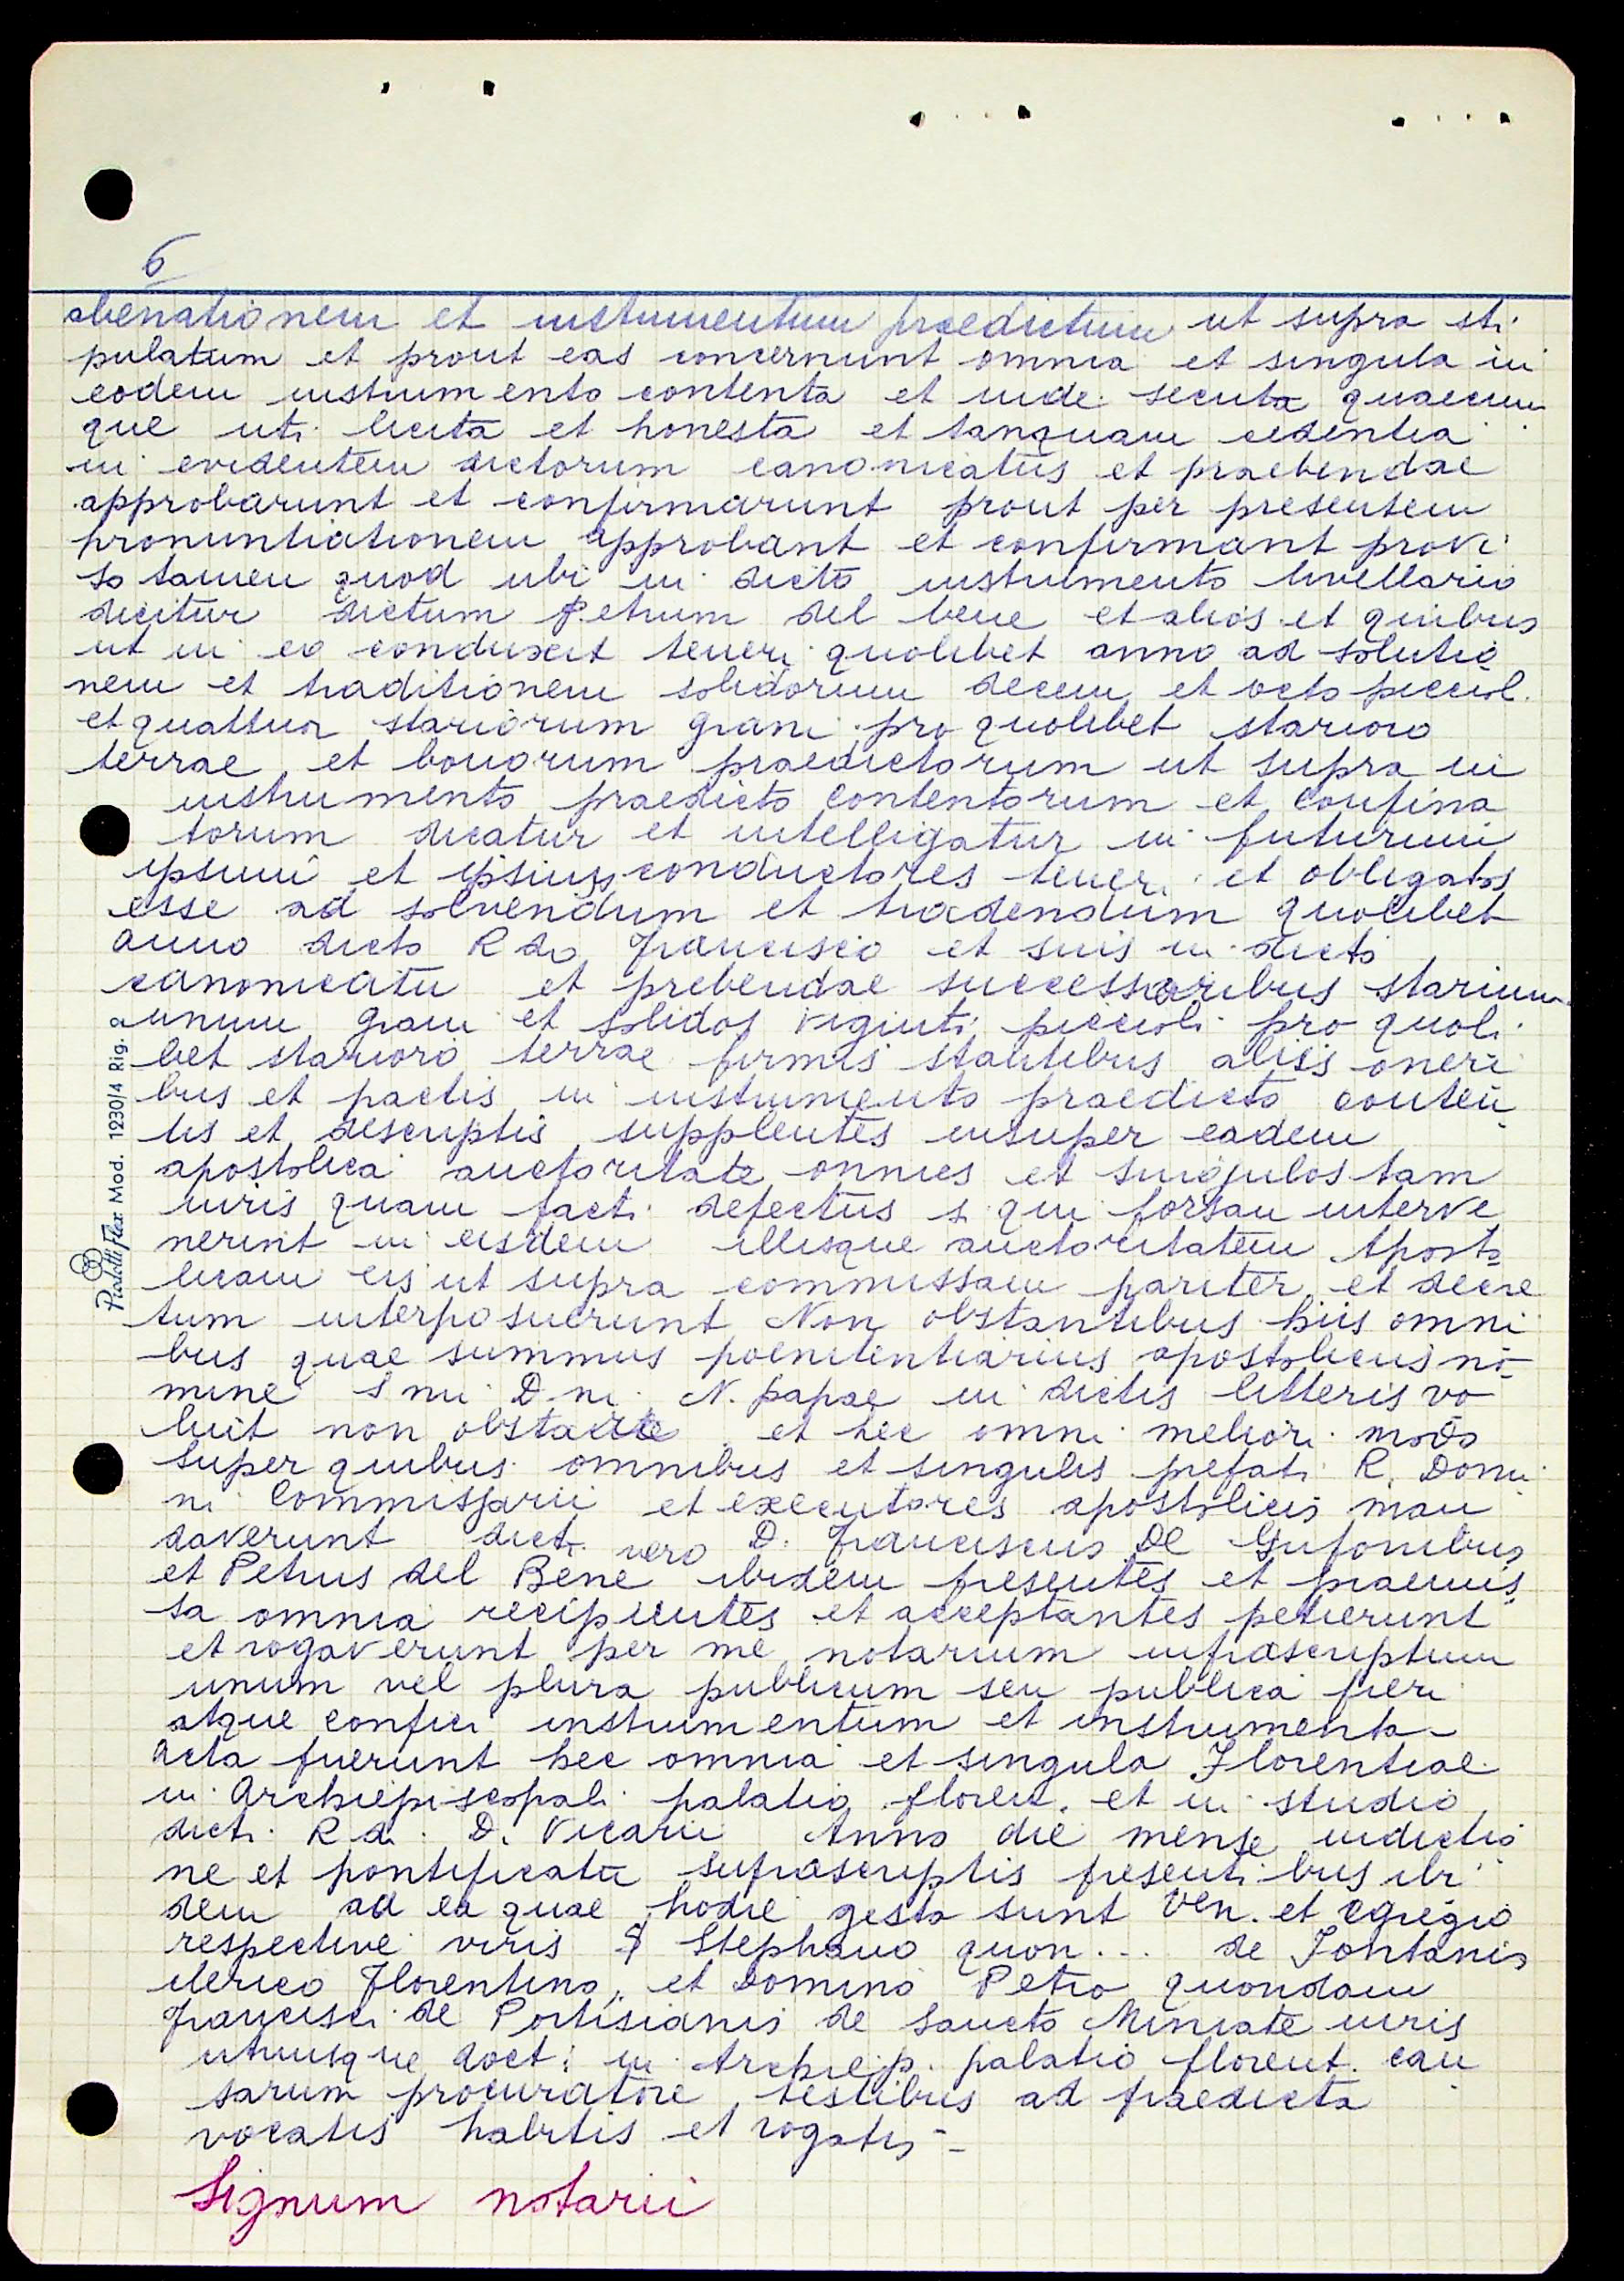 6
alienationem et instrumentum praedictum ut supra sti
pulatum et prout eas concernunt omnia et singula in
eodem instrumento contenta et inde secuta quaecum
que uti licita et honesta et tanquam cedentia
in evidentem dictorum canonicatus et praebendae
approbarunt et confirmarunt prout per presentem
pronuntiationem approbant et confirmant provi
so tamen quod ubi in dicto instrumento livellario
dicitur dictum Petrum del bene et alios et quibus
ut in eo conduxit teneri quolibet anno ad solutio
nem et traditionem solidorum decem et octo picciol.
et quattuor stariorum grani pro quolibet starioro
terrae et bonorum praedictorum ut supra in
instrumento praedicto contentorum et confina
torum dicatur et intelligatur in futurum
ipsum et ipsius conductores teneri et obligatos
esse ad solvendum et tradendum quolibet
anno dicto Rdo Francisco et suis in dicto
canonicatu et prebendae successoribus starium
unum grani et solidos viginti piccioli pro quoli
bet starioro terrae firmis stantibus aliis oneri
bus et pactis in instrumento praedicto conten
tis et descriptis supplentes insuper eadem
apostolica auctoritate omnes et singulos tam
iuris quam facti defectus si qui forsan interve
nerint in eisdem illisque auctoritatem Aposto
licam eis ut supra commissam pariter et decre
tum interposuerunt Non obstantibus hiis omni
bus quae summus poenitentiarius apostolicus no
mine S mi D ni N. papae in dictis litteris vo
luit non obstare et hec omni meliori modo
super quibus omnibus et singulis prefati R. Domi
ni Commissarii et executores apostolicis man
daverunt dicti vero D. Franciscus De Gufonibus
et Petrus del Bene ibidem presentes et praemis
sa omnia recipientes et acceptantes petierunt
et rogaverunt per me notarium infrascriptum
unum vel plura publicum seu publica fieri
atque confici instrumentum et instrumenta -
Acta fuerunt hec omnia et singula Florentiae
in Archiepiscopali palatio florent. et in studio
dicti R di D. Vicarii Anno die mense indictio
ne et pontificatu suprascriptis presentibus ibi
dem ad ea quae hodie gesta sunt Ven. et egregio
respective viris S Stephano quon... de Fontanis
clerico Florentino, et Domino Petro quondam
Francisci de Portisianis de Sancto Miniate iuris
utriusque doct: in Archiep. palatio florent. cau
sarum procuratore testibus ad praedicta
vocatis habitis et rogatis -
Signum notarii
Pigna Flex Mod. 1230/4 Rig. a